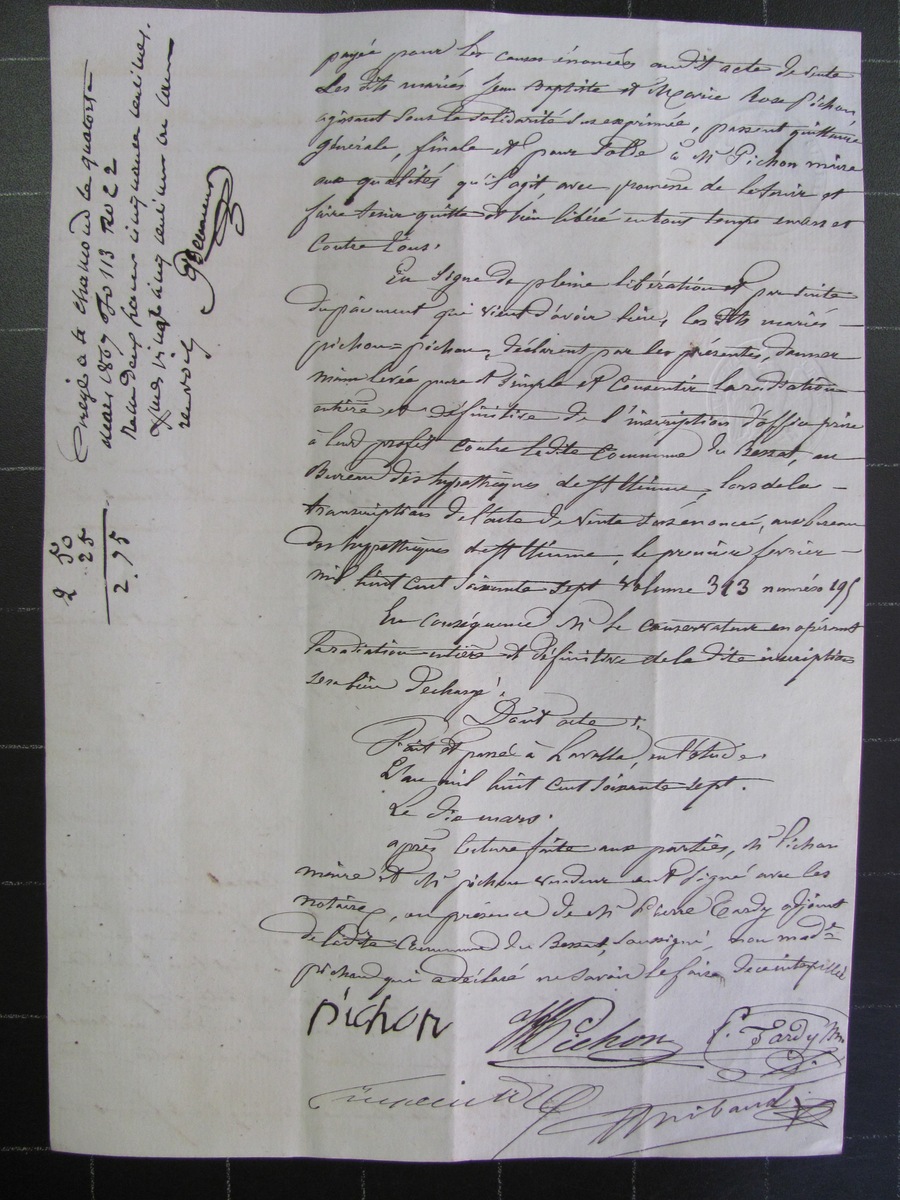 payée pour les causes énoncées audit acte de vente
Les dits mariés Jean Baptiste et Marie Rose Pichon
agissant sous la solidarité sus exprimée, passent quittance
générale, finale et pour solde à Mr Pichon maire
aux qualités qu'il agit avec promesse de le tenir et
faire tenir quitte et bien libéré en tous temps envers et
contre tous.
En signe de pleine libération et par suite
du paiement qui vient d'avoir lieu, les dits mariés
pichon-pichon, déclarent par les présentes, donner
main levée pure et simple et consentir la radiation
entière et définitive de l'inscription d'office prise
à leur profit contre ledite Commune du Bessat, au
Bureau des hypothèques de St Etienne, lors de la
transcription de l'acte de vente sus énoncé, aux bureau
des hypothèques de St Etienne, le premier fevrier
mil huit cent soixante sept volume 313 numéro 195
En conséquence Mr Le conservateur en opérant
la radiation entière et définitive de la dite inscription
sera bien déchargé.
Dont acte.
Fait et passé à Lavalla, en l'étude
L'an mil huit cent soixante sept.
Le dix mars.
après lecture faite aux parties, Mr Pichon
maire et Mr pichon vendeur ont signé avec les
notaires, en présence de Mr Pierre Tardy adjoint
de ledite Commune du Bessat, soussigné, non made
pichon qui a déclaré ne savoir le faire, de ce interpellée
Pichon
Pichon
P. Tardy
Enregé à St Chamond le quatorze
mars 1867 fo 113 Ro C 2
Reçu deux francs cinquante centimes.
Dixmes vingt cinq centimes
renvoi
2 50
25
2.75